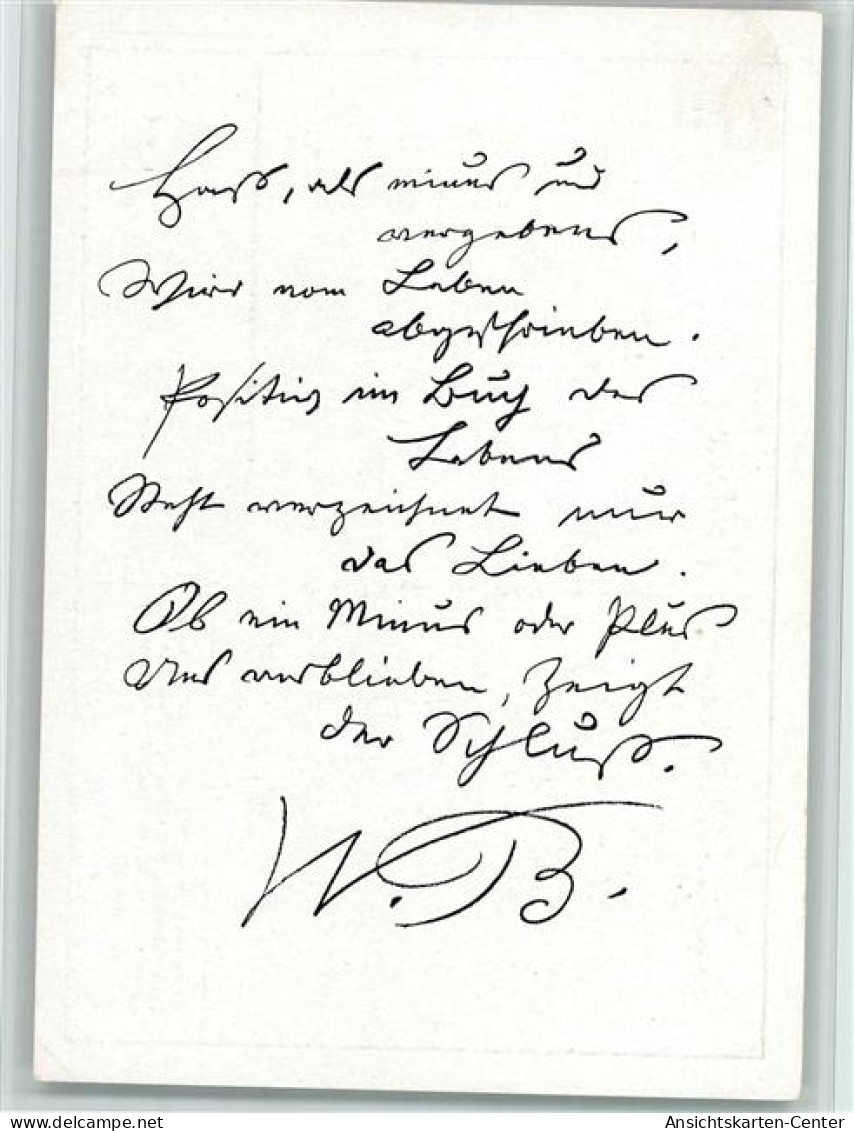 Haß, als minus und
vergebens,
Wird vom Leben
abgeschrieben.
Positiv im Buch des
Lebens
Steht verzeichnet nur
das Lieben.
Ob ein Minus oder Plus
Uns verblieben, zeigt
der Schluß.
W. B.
www.delcampe.net
Ansichtskarten-Center